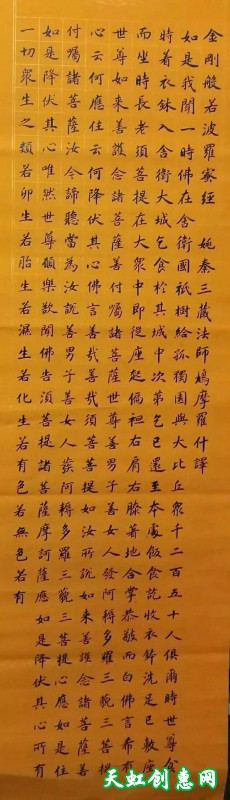 金剛般若波羅蜜經 姚秦三藏法師鳩摩羅什譯
如是我聞一時佛在舍衛國祇樹給孤獨園與大比丘眾千二百五十人俱爾時世尊食
時着衣鉢入舍衛大城乞食於其城中次第乞已還至本處飯食訖收衣鉢洗足已敷座
而坐時長老須菩提在大眾中即從座起偏袒右肩右膝著地合掌恭敬而白佛言希有
世尊如來善護念諸菩薩善付囑諸菩薩世尊善男子善女人發阿耨多羅三藐三菩提
心云何應住云何降伏其心佛言善哉善哉須菩提如汝所說如來善護念諸菩薩善
付囑諸菩薩汝今諦聽當為汝說善男子善女人發阿耨多羅三藐三菩提心應如是住
如是降伏其心唯然世尊願樂欲聞佛告須菩提諸菩薩摩訶薩應如是降伏其心所有
一切眾生之類若卵生若胎生若濕生若化生若有色若無色若有
天虹创意网